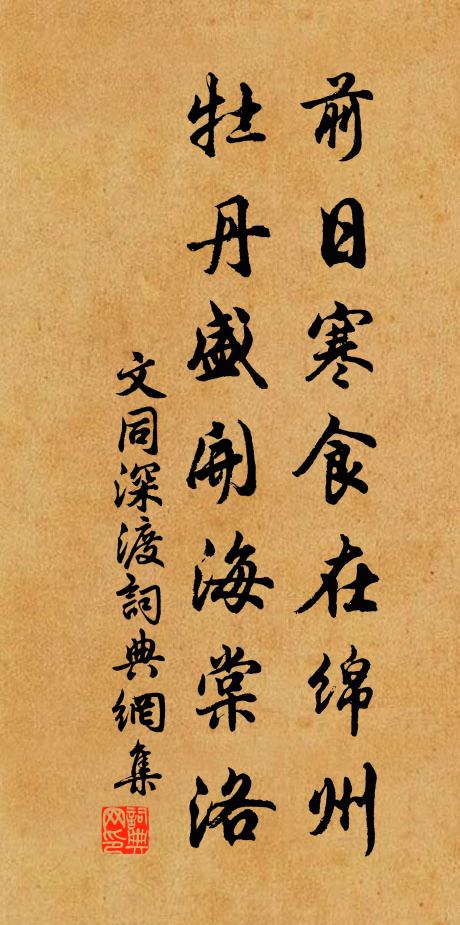 前日寒食在绵州
牡丹盛開海棠洛
文同深渡詞典網集
詞典網印